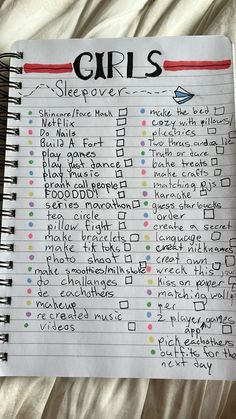 GIRLS
Sleepover
Skincare/Face Mask
Netflix
Do Nails
Build A Fort
play games
play just dance
play music
prank call people
FOOODDDD!
series marathon
tea circle
pillow fight
make bracelets
make tik toks
photo shoot
make smoothies/milkshake
do challanges
do eachothers
makeup
recreated music
videos
make the bed
cozy with pillows/
plushies
Two thrus and a lie
Truth or dare
bake treats
make crafts
matching pjs
karaoke
guess starbucks
order
create a secret
language
creat nicknames
creat own
wreck this
kiss on paper
matching wall
per
2 player games
app
pick eachothers
outfits for the
next day